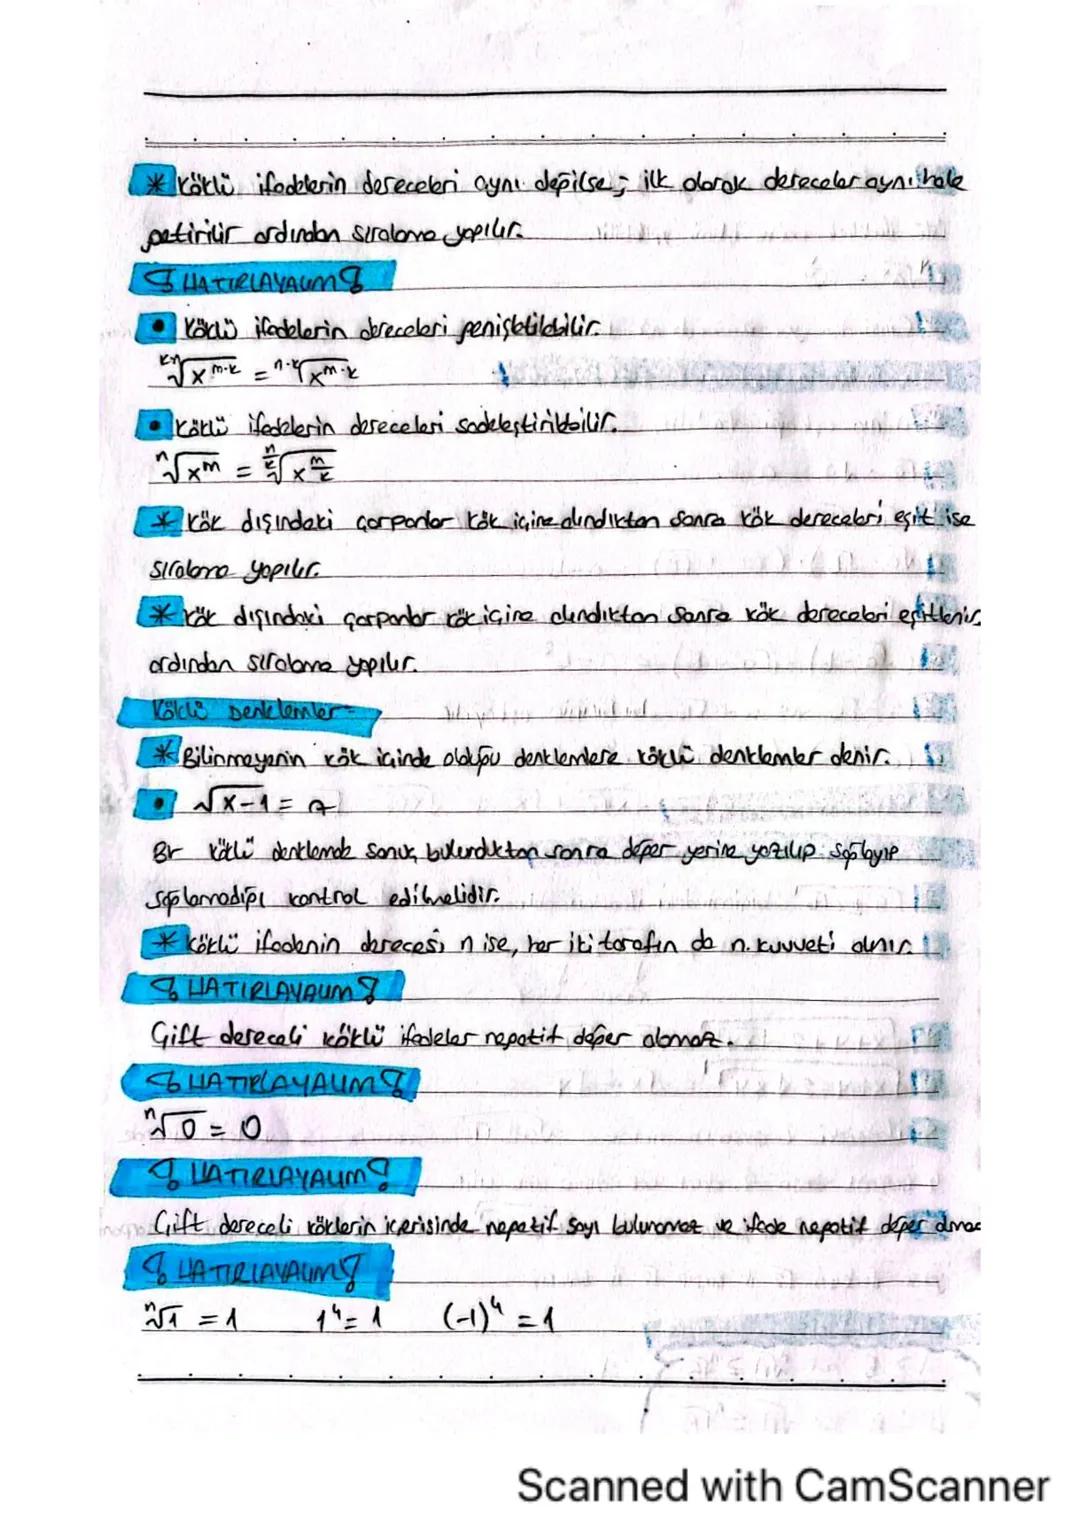 * Köklü ifadelerin dereceleri aynı değilse; ilk olarak dereceler aynı hale
getirilir ardından sıralama yapılır.
! HATIRLAYALIM !
• Köklü ifadelerin dereceleri genişletilebilir.
ᵏⁿ√x^m·k = ⁿ·ᵏ√x^m·k
• Köklü ifadelerin dereceleri sadeleştirilebilir.
ⁿ√x^m = ^(n/k)√x^(m/k)
* Kök dışındaki çarpanlar kök içine alındıktan sonra kök dereceleri eşit ise
sıralama yapılır.
* Kök dışındaki çarpanlar kök içine alındıktan sonra kök dereceleri eşitlenir
ardından sıralama yapılır.
Köklü Denklemler
* Bilinmeyenin kök içinde olduğu denklemlere köklü denklemler denir.
• √x-1 = 7
Bir köklü denklemde sonuç bulunduktan sonra değer yerine yazılıp sağlayıp
sağlamadığı kontrol edilmelidir.
* Köklü ifadenin derecesi n ise, her iki tarafın da n. kuvveti alınır.
! HATIRLAYALIM !
Çift dereceli köklü ifadeler negatif değer alamaz.
! HATIRLAYALIM !
ⁿ√0 = 0
! HATIRLAYALIM !
Çift dereceli köklerin içerisinde negatif sayı bulunamaz ve ifade negatif değer almaz
! HATIRLAYALIM !
ⁿ√1 = 1 1⁴ = 1 (-1)⁴ = 1
Scanned with CamScanner